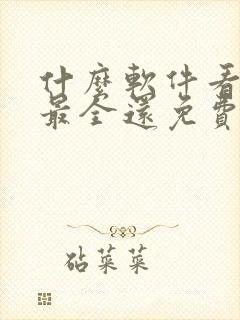 什麼軟件看
最全還免費
砧菜菜